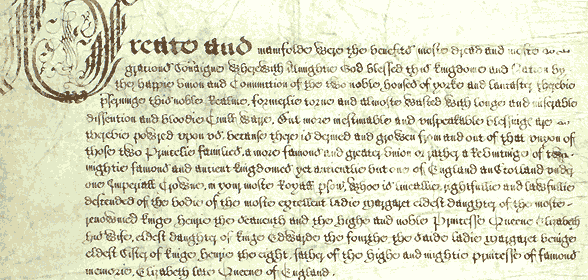 Greate and manifolde were the benefits moste dread and moste
gracious Soveraigne wherewith Almightie God blessed this kingdome and Nation by
the happie Union and Coniunction of the two noble houses of Yorke and Lancaster therebie
pserving this noble Realme, formerlie torne and almoste wasted with longe and miserable
dissention and bloodie Civill Warr. But more inestimable and unspeakable blessings are
therebie powred upon us. because there is derived and growen from and out of that unyon of
those two Princelie families, a more famous and greater Union or rather a Reuniting of two
mightie famous and antient kingdomes yet antientlie but one of England and Scotland under
one Imperiall Crowne, in your moste Royall pson, who is lineallie, rightfullie and lawfullie
descended of the bodie of the moste excellent ladie Margaret eldest daughter of the moste
renowned kinge Henrie the seaventh and the highe and noble Princesse Queene Elizabeth
his wife, eldest daughter of kinge Edwarde the fourthe. the saide ladie Margaret beinge
eldest sister of kinge Henrie the eight, father of the highe and mightie Princesse of famous
memorie, Elizabeth late Queene of England.